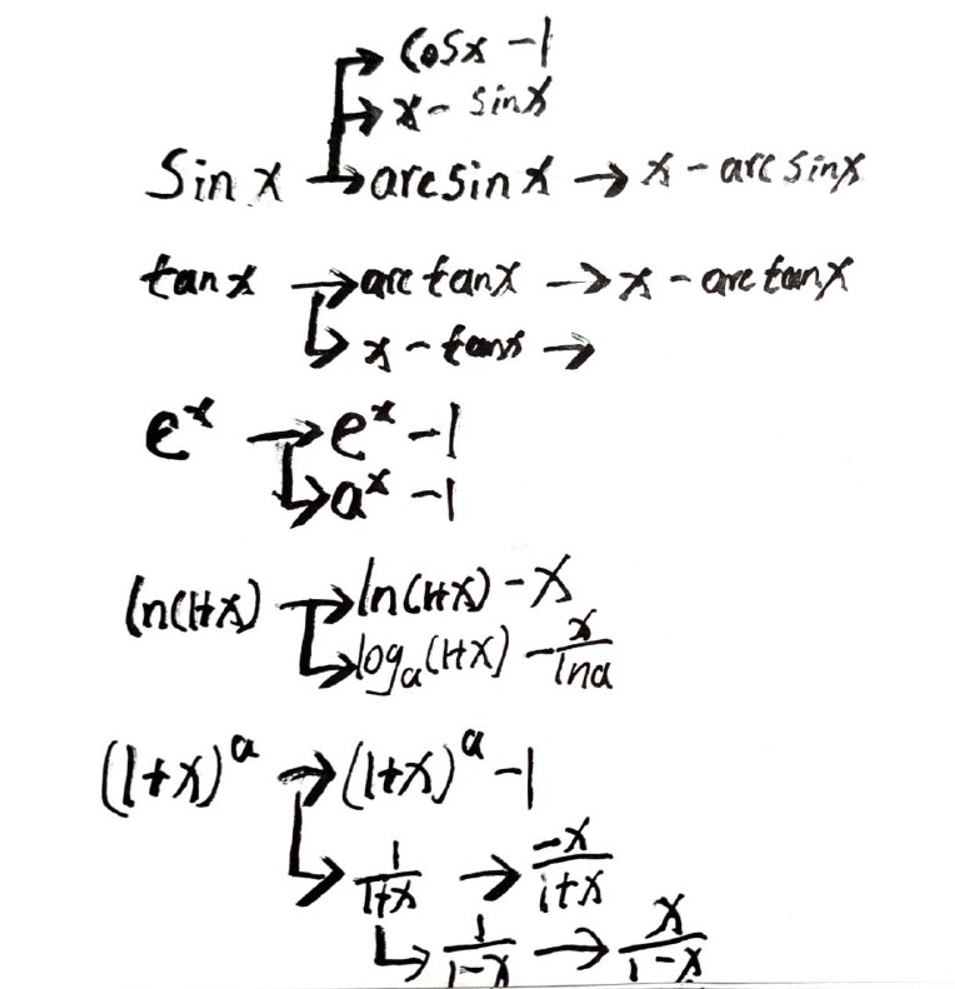 → cosx - 1
→ x - sinx
sinx → arcsinx → x - arcsinx
tanx → arctanx → x - arctanx
↳ x - tanx →
eˣ → eˣ - 1
↳ aˣ - 1
ln(1+x) → ln(1+x) - x
↳ logₐ(1+x) - x/lna
(1+x)ᵃ → (1+x)ᵃ - 1
↳ 1/(1+x) → -x/(1+x)
↳ 1/(1-x) → x/(1-x)